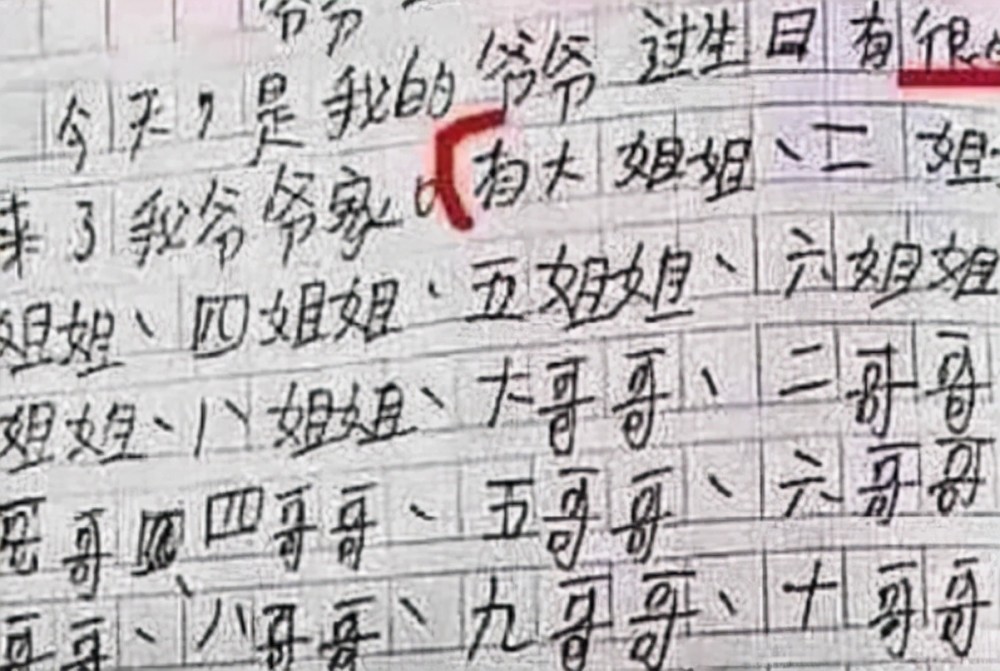 爷爷
今天，是我的爷爷过生日有很
来了我爷爷家。有大姐姐、二姐
姐姐、四姐姐、五姐姐、六姐姐
姐姐、八姐姐、大哥哥、二哥哥
哥哥四四哥哥、五哥哥、六哥哥
哥哥、八哥哥、九哥哥、十哥哥